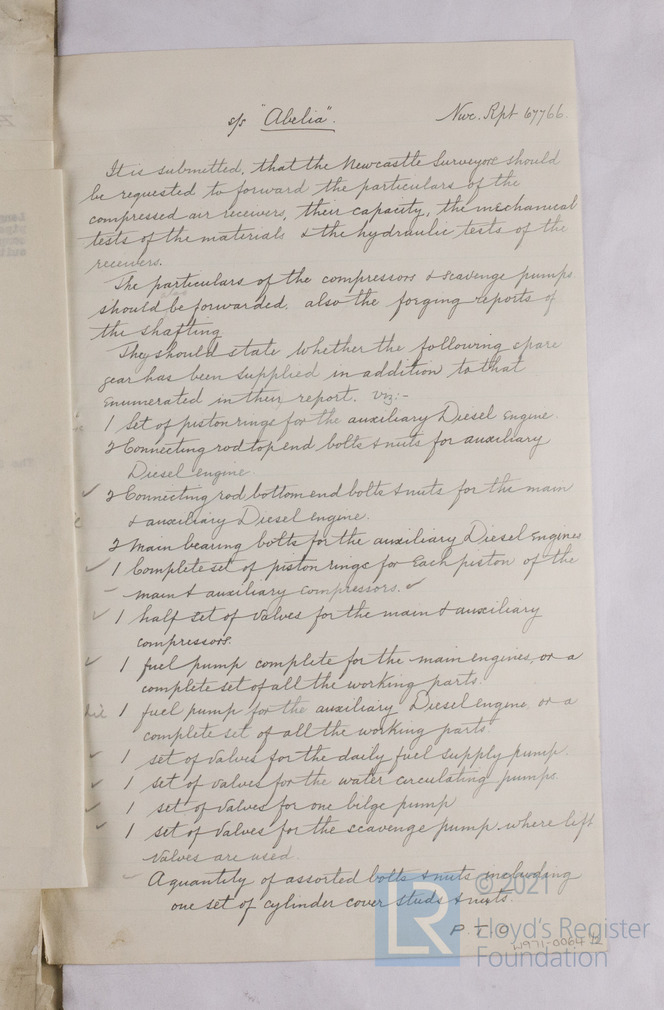 s/s "Abelia". Nwc. Rpt 67766.
It is submitted, that the Newcastle Surveyors should
be requested to forward the particulars of the
compressed air receivers, their capacity, the mechanical
tests of the materials & the hydraulic tests of the
receivers.
The particulars of the compressors & scavenge pumps
should be forwarded, also the forging reports of
the shafting
They should state whether the following spare
gear has been supplied in addition to that
enumerated in their report. viz:-
1 Set of piston rings for the auxiliary Diesel engine.
2 Connecting rod top end bolts & nuts for auxiliary
Diesel engine.
✓ 2 Connecting rod bottom end bolts & nuts for the main
& auxiliary Diesel engine.
2 Main bearing bolts for the auxiliary Diesel engines
✓ 1 Complete set of piston rings for each piston of the
– main & auxiliary compressors. ✓
✓ 1 half set of valves for the main & auxiliary
compressors.
✓ 1 fuel pump complete for the main engines, or a
complete set of all the working parts.
1 fuel pump for the auxiliary Diesel engine, or a
complete set of all the working parts.
✓ 1 set of valves for the daily fuel supply pump.
✓ 1 set of valves for the water circulating pumps.
✓ 1 set of valves for one bilge pump
✓ 1 set of valves for the scavenge pump where lift
valves are used.
✓ A quantity of assorted bolts & nuts including
one set of cylinder cover studs & nuts.
P.T.O
W971-0064 1/2
LR
© 2021
Lloyd's Register
Foundation